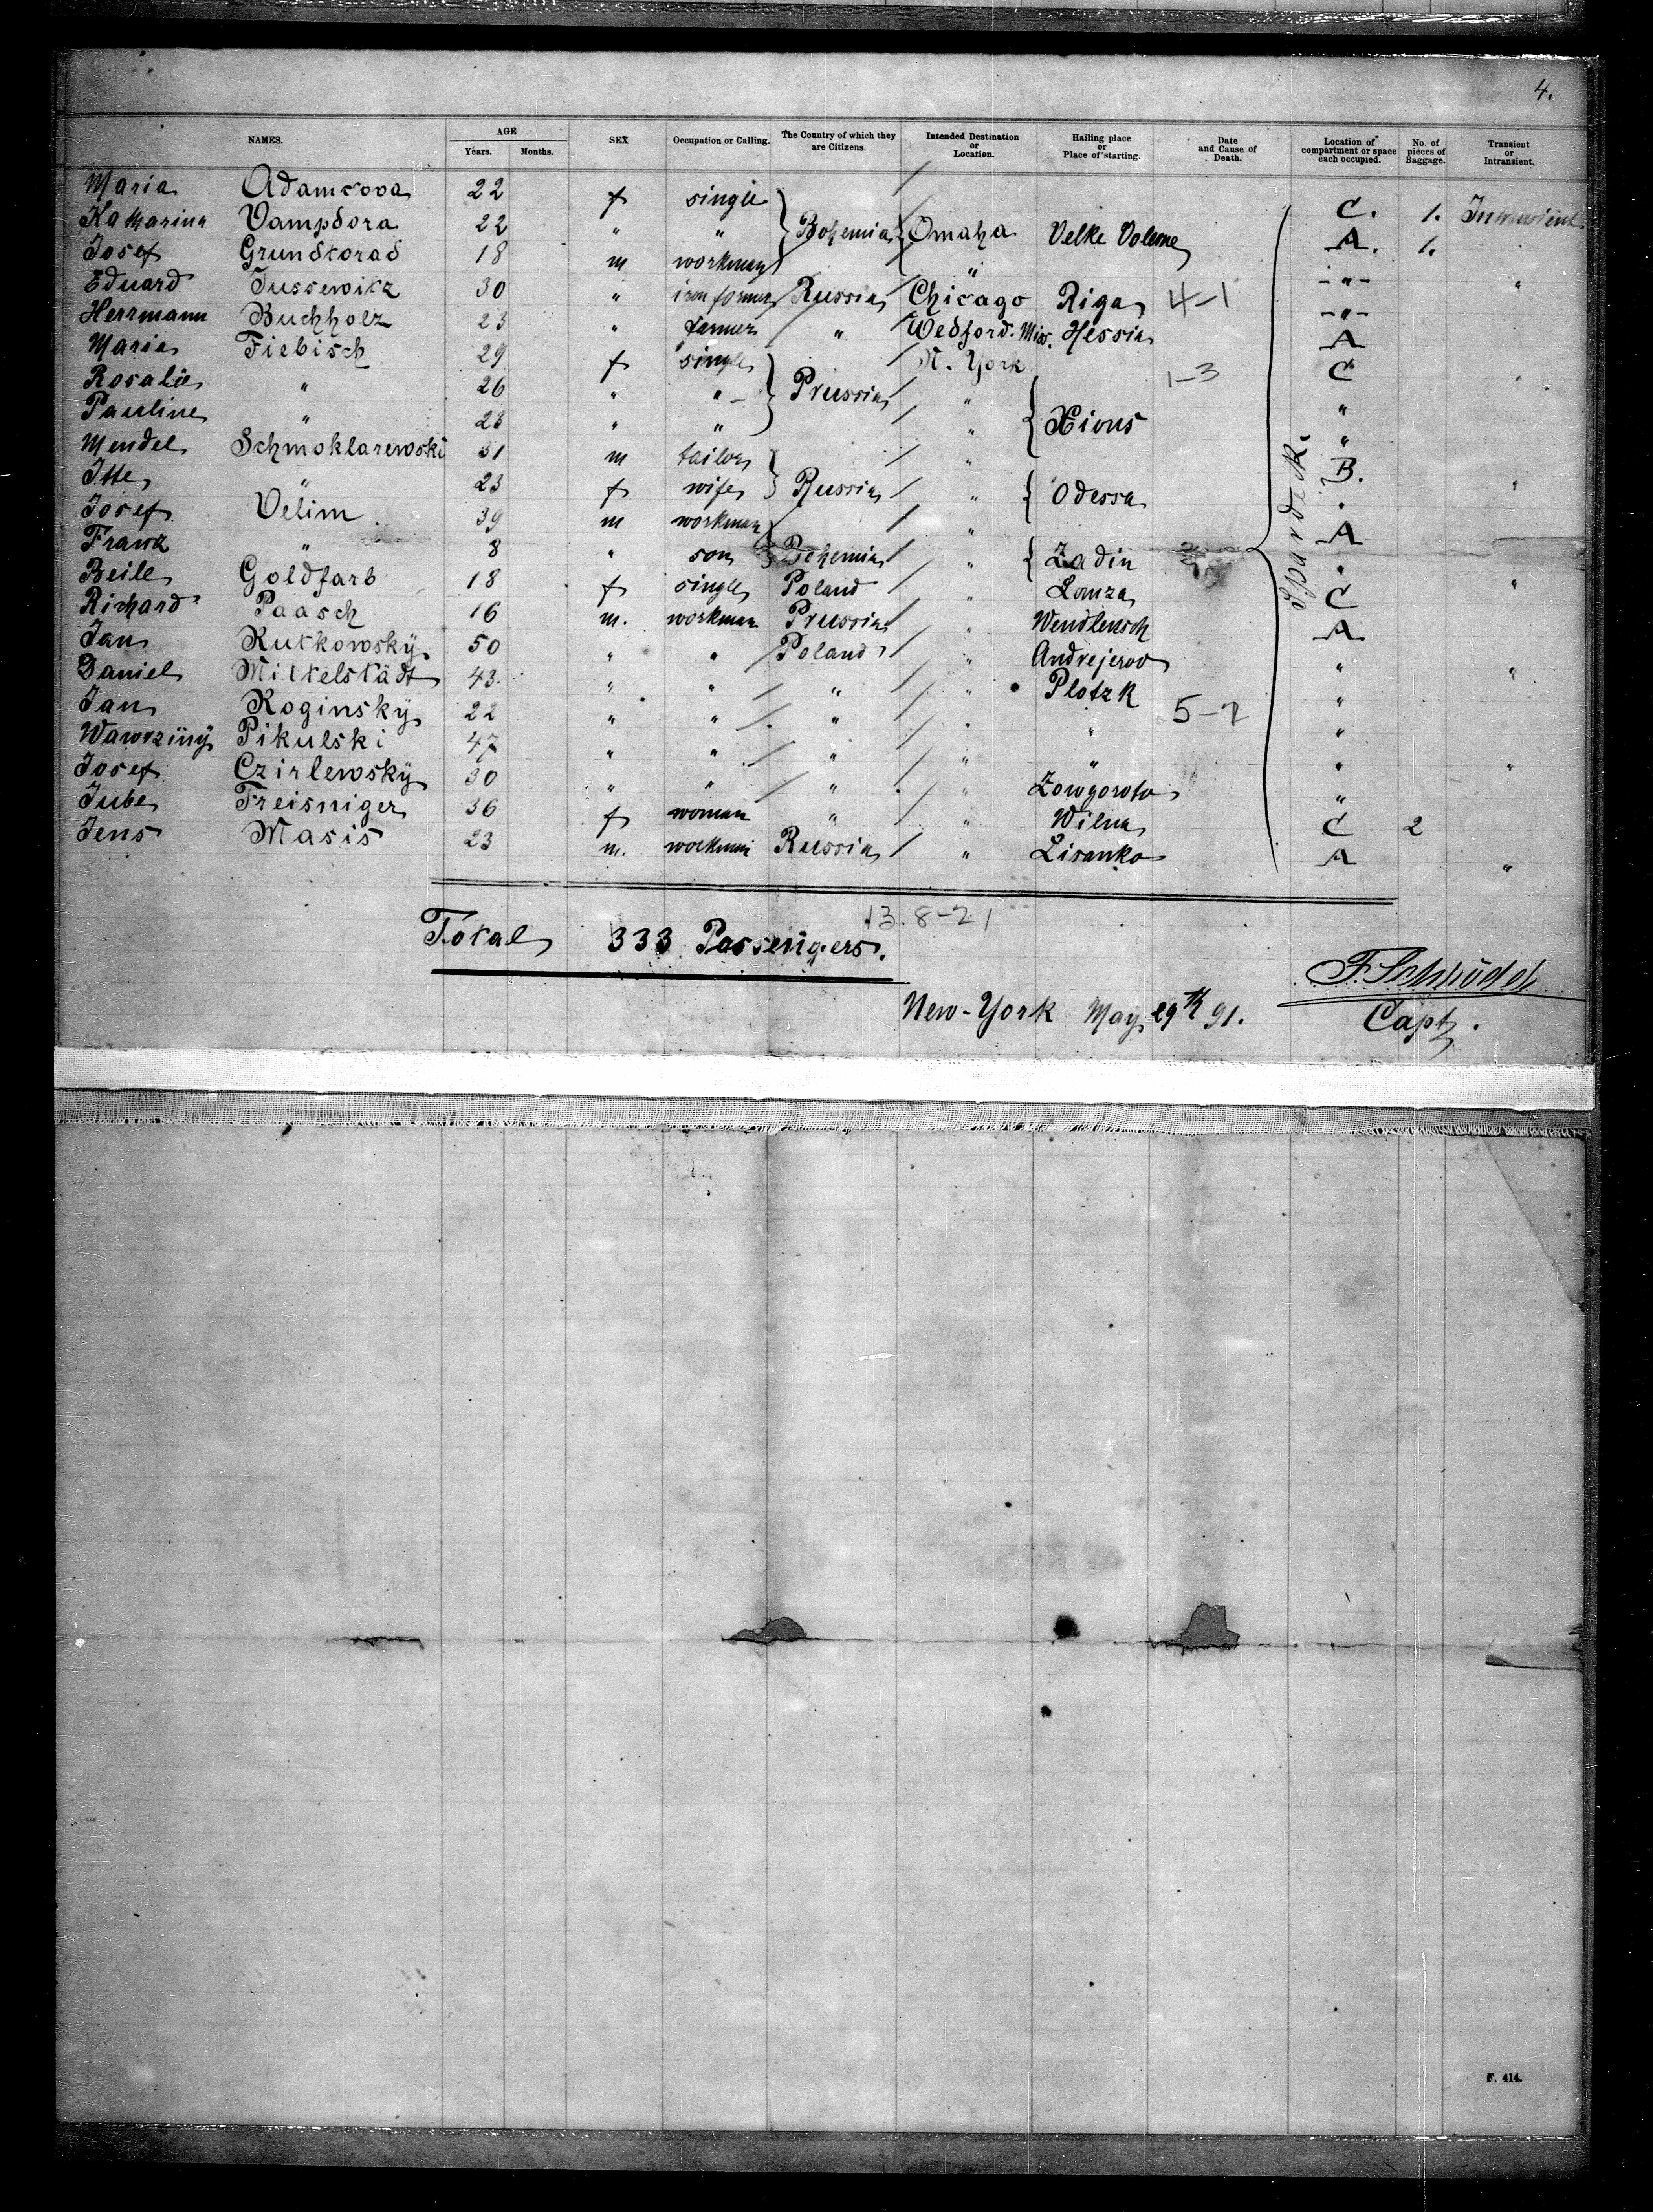 4.
NAMES. AGE Years. Months. SEX Occupation or Calling. The Country of which they are Citizens. Intended Destination or Location. Hailing place or Place of starting. Date and Cause of Death. Location of compartment or space each occupied. No. of pieces of Baggage. Transient or Intransient.
Maria Adamcova 22 f single C. 1.
Katharina Vampdora 22 " " Bohemia Omaha Velke A. 1.
Josef 18 m workman " -"-
Eduard Tussewitz 30 " Russia Chicago Riga 4-1 -"- "
Herrmann Buchholz 23 " farmer " Hessia A
Maria Fiebisch 29 f single N. York 1-3 C "
Rosalie " 26 " " Prussia " Xions "
Pauline " 23 " " " "
Mendel Schmoklarewski 31 m tailor " B.
Itte " 23 f wife Russia " Odessa " "
Josef Velim 39 m workman " A
Franz " 8 " son Bohemia " Zadin "
Beile Goldfarb 18 f single Poland " Lomza C "
Richard Paasch 16 m. workman Prussia " A
Jan Rutkowsky 50 " " Poland " Andrejerov "
Daniel Mittelstädt 43. " " " " Plotzk " "
Jan Roginsky 22 " " " " " 5-2 "
Pikulski 47 " " " " " "
Josef Czirlewsky 30 " " " " "
Jube Freisniger 36 f woman " " Wilna C 2
Jens Masis 23 m. workman Russia " Lisanka A "
Spardeck.
Total 333 Passengers.
13.8-21
New-York May 29th 91.
Capt.
F. 414.